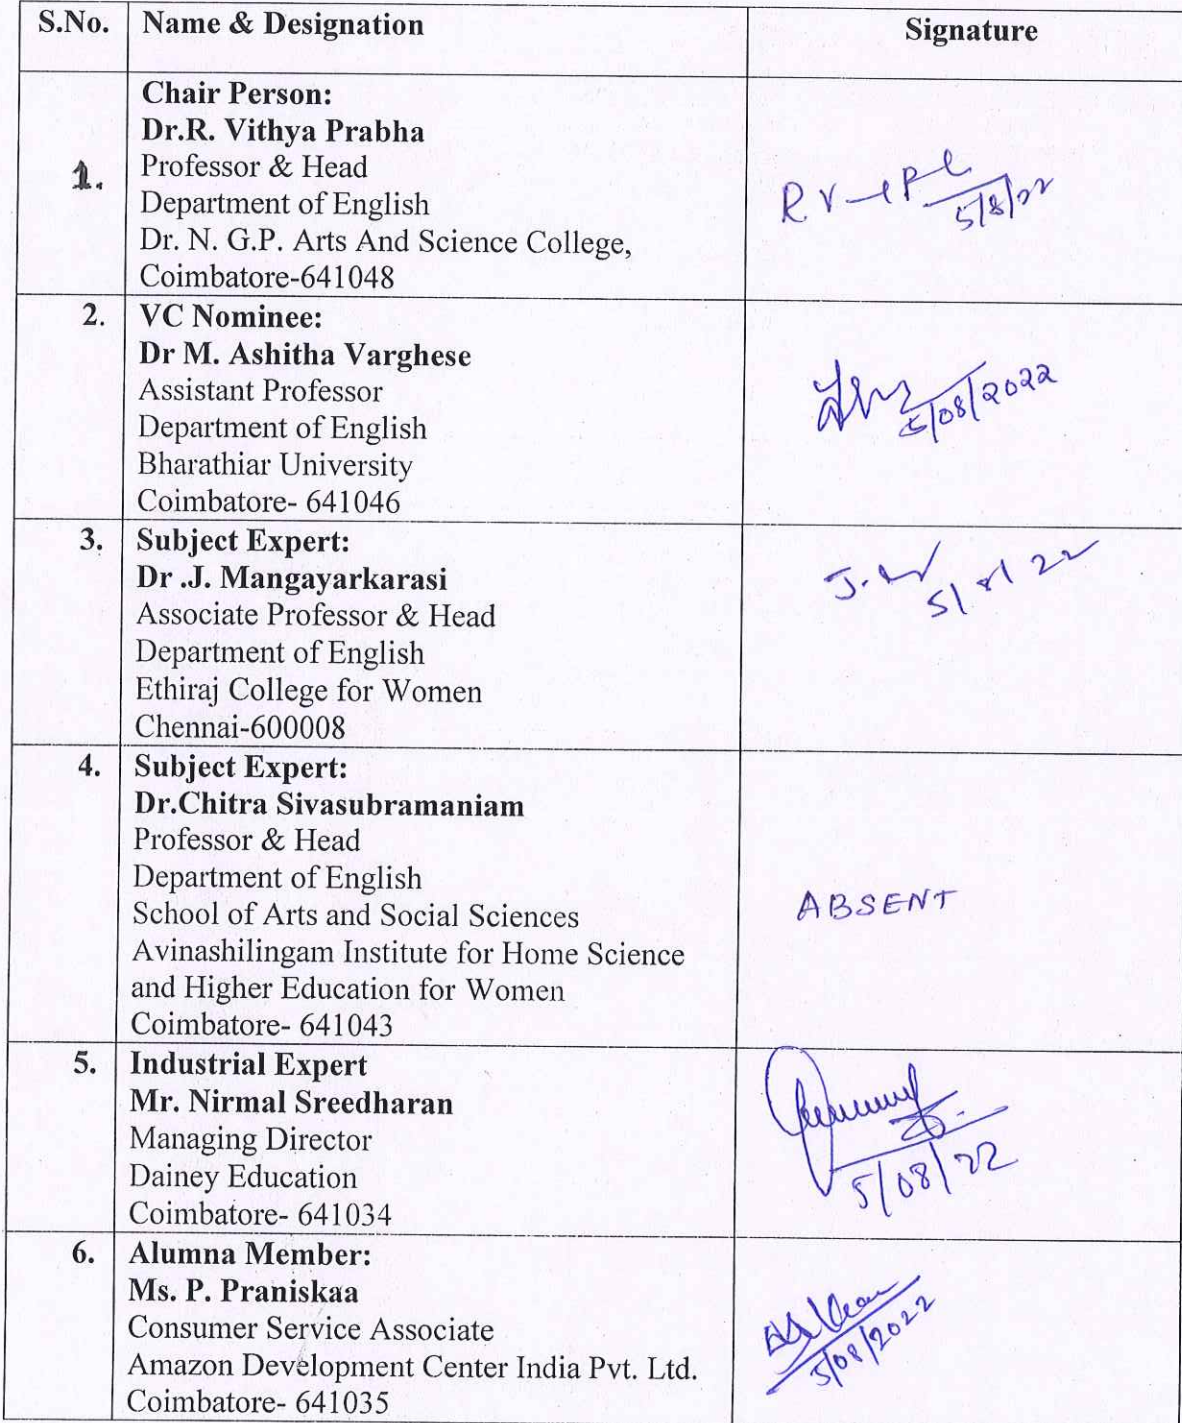 S.No. Name & Designation Signature
Chair Person:
Dr.R. Vithya Prabha
1. Professor & Head
Department of English
Dr. N. G.P. Arts And Science College,
Coimbatore-641048
5/8/22
2. VC Nominee:
Dr M. Ashitha Varghese
Assistant Professor
Department of English
Bharathiar University
Coimbatore- 641046
5/08/2022
3. Subject Expert:
Dr .J. Mangayarkarasi
Associate Professor & Head
Department of English
Ethiraj College for Women
Chennai-600008
5/8/22
4. Subject Expert:
Dr.Chitra Sivasubramaniam
Professor & Head
Department of English
School of Arts and Social Sciences
Avinashilingam Institute for Home Science
and Higher Education for Women
Coimbatore- 641043
ABSENT
5. Industrial Expert
Mr. Nirmal Sreedharan
Managing Director
Dainey Education
Coimbatore- 641034
5/08/22
6. Alumna Member:
Ms. P. Praniskaa
Consumer Service Associate
Amazon Development Center India Pvt. Ltd.
Coimbatore- 641035
5/08/2022